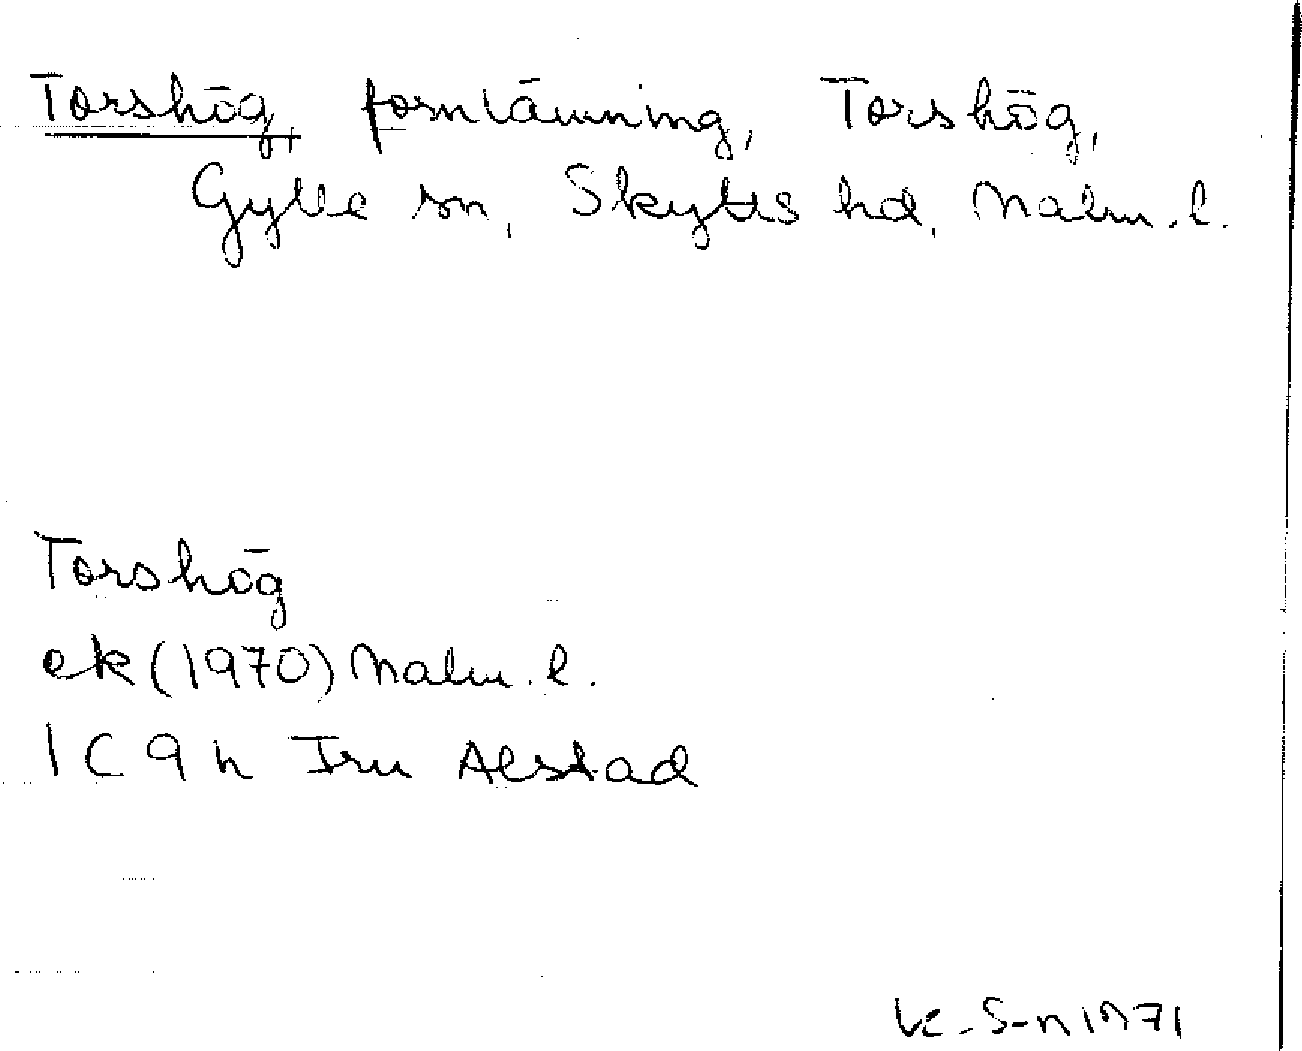 Torshög, fornlämning, Torshög,
Gylle sn, Skytts hd, Malm. l.
Torshög
ek (1970) Malm. l.
1C 9h Tru Alstad
1971